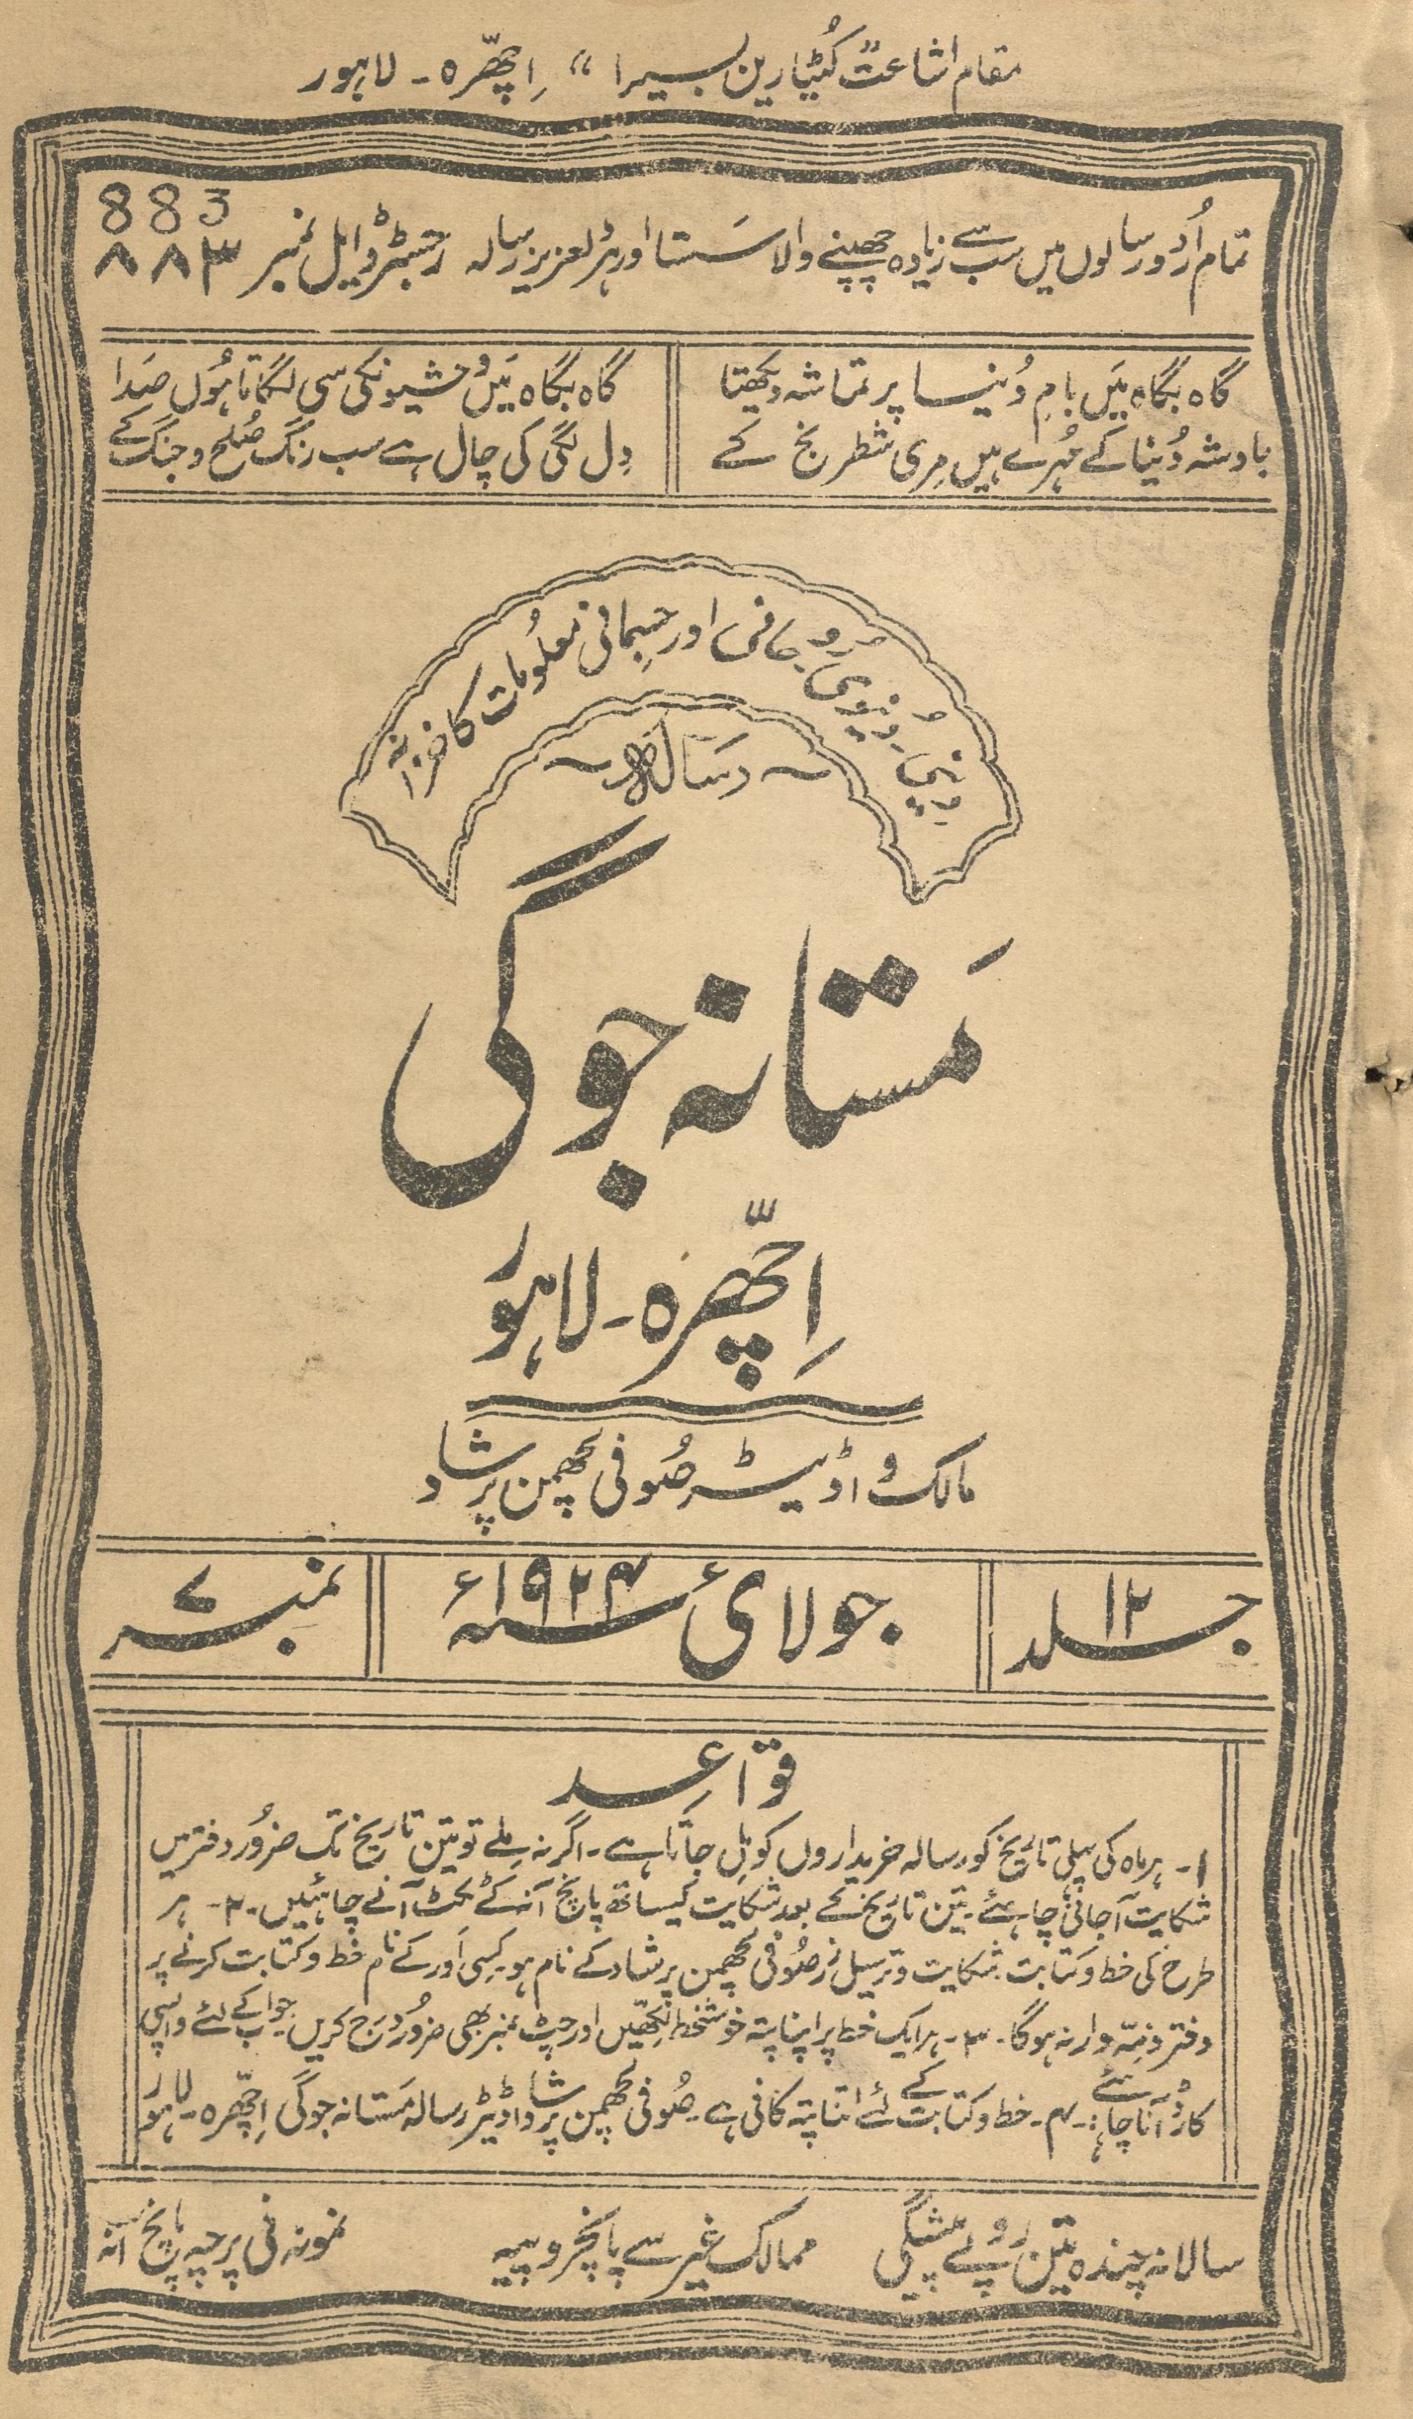 مقام اشاعت "کُٹیا رین بسیرا" اِچھّرہ۔ لاہور
883
تمام اُردو رسالوں میں سب سے زیادہ چھپنے والا سَستا اور ہر لعزیز رسالہ رجسٹرڈ ایل نمبر ۸۸۳
گاہ بگاہ مَیں بامِ دُنیا پر تماشہ دیکھتا
گاہ بگاہ مَیں وحشیونکی سی لگاتا ہُوں صَدا
بادشہ دُنیا کے مُہرے ہیں مِری شطرنج کے
دِل لگی کی چال ہے سب رنگ صُلح و جنگ کے
دِینی دُنیوی رُوحانی اور جِسمانی معلُومات کا خزانہ
رسَالہ
مَستانہ جوگی
اِچھّرہ۔ لاہور
مالک و اڈیٹر صُوفی لچھمن پرشاد
جلد ۱۲
جولائی سنہ ۱۹۲۴ء
نمبر ۷
قواعِد
۱۔ ہر ماہ کی پہلی تاریخ کو رسالہ خریداروں کو مِل جاتا ہے۔ اگر نہ مِلے تو تین تاریخ تک ضرُور دفتر میں
شکایت آجانی چاہئے۔ تین تاریخ کے بعد شکایت کیساتھ پانچ آنہ کے ٹکٹ آنے چاہئیں۔ ۲۔ ہر
طرح کی خط و کتابت۔ شکایت و ترسیل زر صُوفی لچھمن پرشاد کے نام ہو۔ کِسی اَور کے نام خط و کتابت کرنے پر
دفتر ذمّہ وار نہ ہوگا۔ ۳۔ ہر ایک خط پر اپنا پتہ خوشخط لِکھّیں اور چِٹ نمبر بھی ضرُور دَرج کریں جواب کے لئے واپسی
کارڈ آنا چاہئے :۔ ۴۔ خط و کتابت کے لئے اتنا پتہ کافی ہے۔ صُوفی لچھمن پرشاد اڈیٹر رسالہ مَستانہ جوگی اِچھّرہ۔ لاہور
سالانہ چندہ تین روپے پیشگی
ممالک غیر سے پانچروپیہ
نمونہ فی پرچہ پانچ آنہ